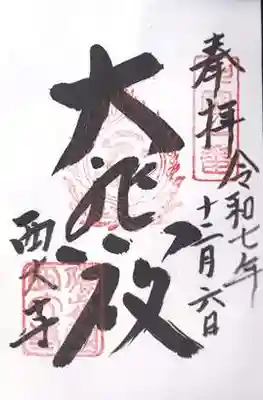 奉拝
令和七年
十二月六日
大悲殿
西大寺